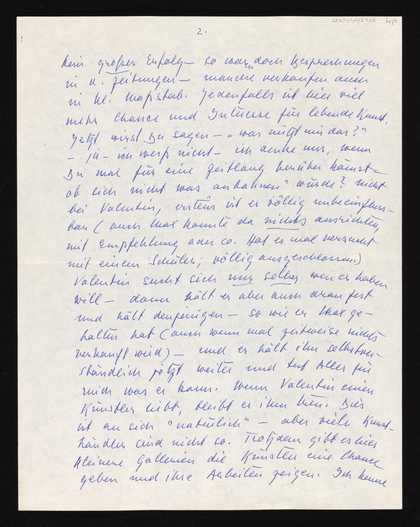 2.
kein großer Erfolg – so war doch Besprechungen
in d. Zeitungen – manche verkaufen auch
in kl. Masstab. Jedenfalls ist hier viel
mehr Chance und Interesse für lebende Kunst.
Jetzt wirst Du sagen – "was nützt mir das?"
– ja – ich weiss nicht – ich denke nur, wenn
Du mal für eine Zeitlang herüber kämst –
ob sich nicht was anbahnen würde? nicht
bei Valentin, erstens ist er völlig unbeeinfluss-
bar (auch Karl konnte da nichts ausrichten
mit Empfehlung oder so. Hat es mal versucht
mit einem Schüler, völlig ausgeschlossen)
Valentin sucht sich nur selber wen er haben
will – dann hält er aber auch daran fest
und hält denjenigen – so wie er Karl ge-
halten hat (auch wenn mal zeitweise nichts
verkauft wird) – und er hält ihn selbstver-
ständlich jetzt weiter und tut Alles für
mich was er kann. Wenn Valentin einen
Künstler liebt, bleibt er ihm treu. Dies
ist an sich "natürlich" – aber viele Kunst-
händler sind nicht so. Trotzdem gibt es hier
kleinere Gallerien die Künstler eine Chance
geben und ihre Arbeiten zeigen. Ich kenne